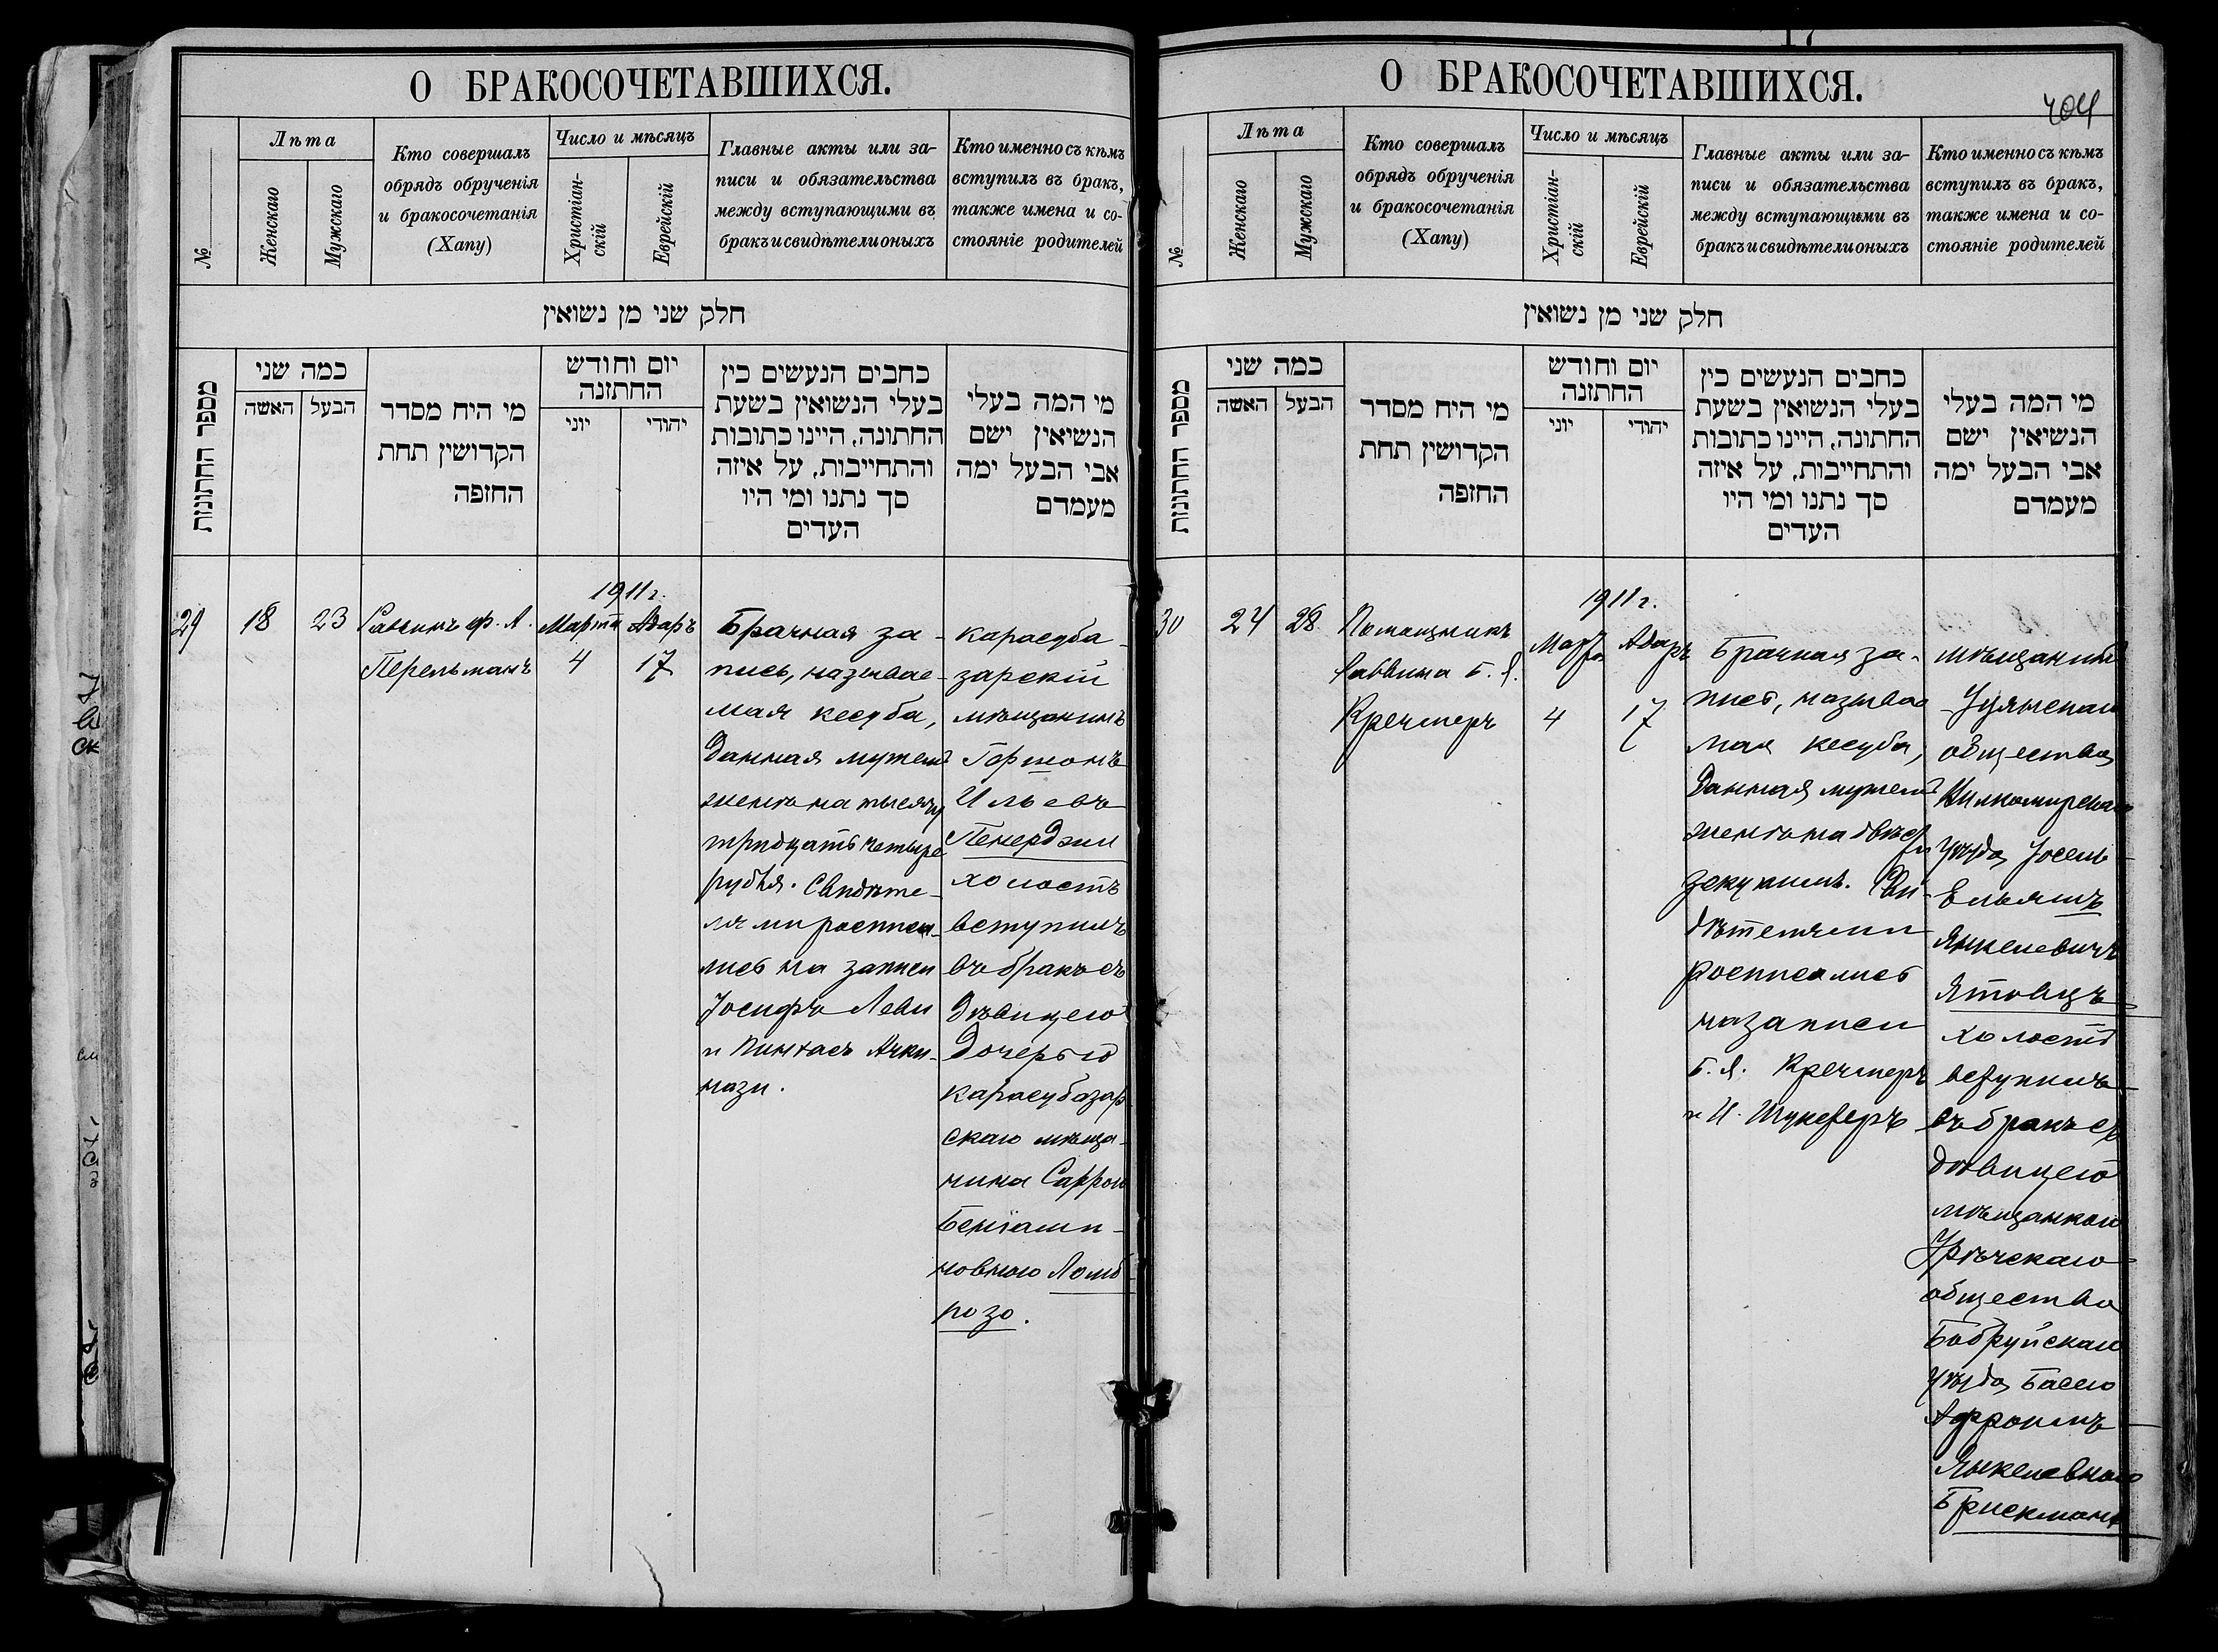 О БРАКОСОЧЕТАВШИХСЯ.
№
Лѣта
Женскаго
Мужскаго
Кто совершалъ
обрядъ обрученія
и бракосочетанія
(Хапу)
Число и мѣсяцъ
Христіан-
скій
Еврейскій
Главные акты или за-
писи и обязательства
между вступающими въ
бракъ и свидѣтели оныхъ
Кто именно съ кѣмъ
вступилъ въ бракъ,
также имена и со-
стояніе родителей
חלק שני מן נשואין
מספר החתונות
כמה שני
האשה
הבעל
מי היח מסדר
הקדושין תחת
החופה
יום וחודש
החתונה
יוני
יהודי
כחבים הנעשים כין
בעלי הנשואין בשעת
החתונה, היינו כתובות
והתחייבות, על איזה
סך נתנו ומי היו
העדים
מי המה בעלי
הנשיאין ישם
אבי הבעל ימה
מעמדם
29
18
23
Раввинъ ф. А.
Перельманъ
1911 г.
Марта
4
Адаръ
17
Брачная за-
пись, называе-
мая кесуба,
данная мужемъ
женѣ на тысячу
тридцать четыре
рубля. Свидѣте-
лями росписа-
лись на записи
Іосифъ Леви
и Пинхасъ Ачки-
нази.
карасуба-
зарскій
мѣщанинъ
Гершонъ
Ильевъ
Пенерджи
холостъ
вступилъ
въ бракъ съ
дѣвицею
дочерью
карасубазар
скаго мѣща-
нина Саррой
Беніами-
новною Ломб-
розо.
О БРАКОСОЧЕТАВШИХСЯ.
404
№
Лѣта
Женскаго
Мужскаго
Кто совершалъ
обрядъ обрученія
и бракосочетанія
(Хапу)
Число и мѣсяцъ
Христіан-
скій
Еврейскій
Главные акты или за-
писи и обязательства
между вступающими въ
бракъ и свидѣтели оныхъ
Кто именно съ кѣмъ
вступилъ въ бракъ,
также имена и со-
стояніе родителей
חלק שני מן נשואין
מספר החתונות
כמה שני
האשה
הבעל
מי היח מסדר
הקדושין תחת
החופה
יום וחודש
החתונה
יוני
יהודי
כחבים הנעשים כין
בעלי הנשואין בשעת
החתונה, היינו כתובות
והתחייבות, על איזה
סך נתנו ומי היו
העדים
מי המה בעלי
הנשיאין ישם
אבי הבעל ימה
מעמדם
30
24
28
Помощникъ
раввина Б. Я.
Кречмеръ
1911 г.
Марта
4
Адаръ
17
Брачная за-
пись, называе
мая кесуба,
данная мужемъ
женѣ на двѣсти
зекукимъ. Сви-
дѣтелями
росписались
на записи
Б. Я. Кречмеръ
и И.
мѣщанинъ
общества
Вилкомирскаго
уѣзда Іосель-
Ельяшъ
Янкелевичъ
Ятовцъ
холостъ
вступилъ
въ бракъ съ
дѣвицею
мѣщанкой
Урѣчскаго
общества
Бобруйскаго
уѣзда Басею
Афроимъ
Янкелевною
Брискманъ